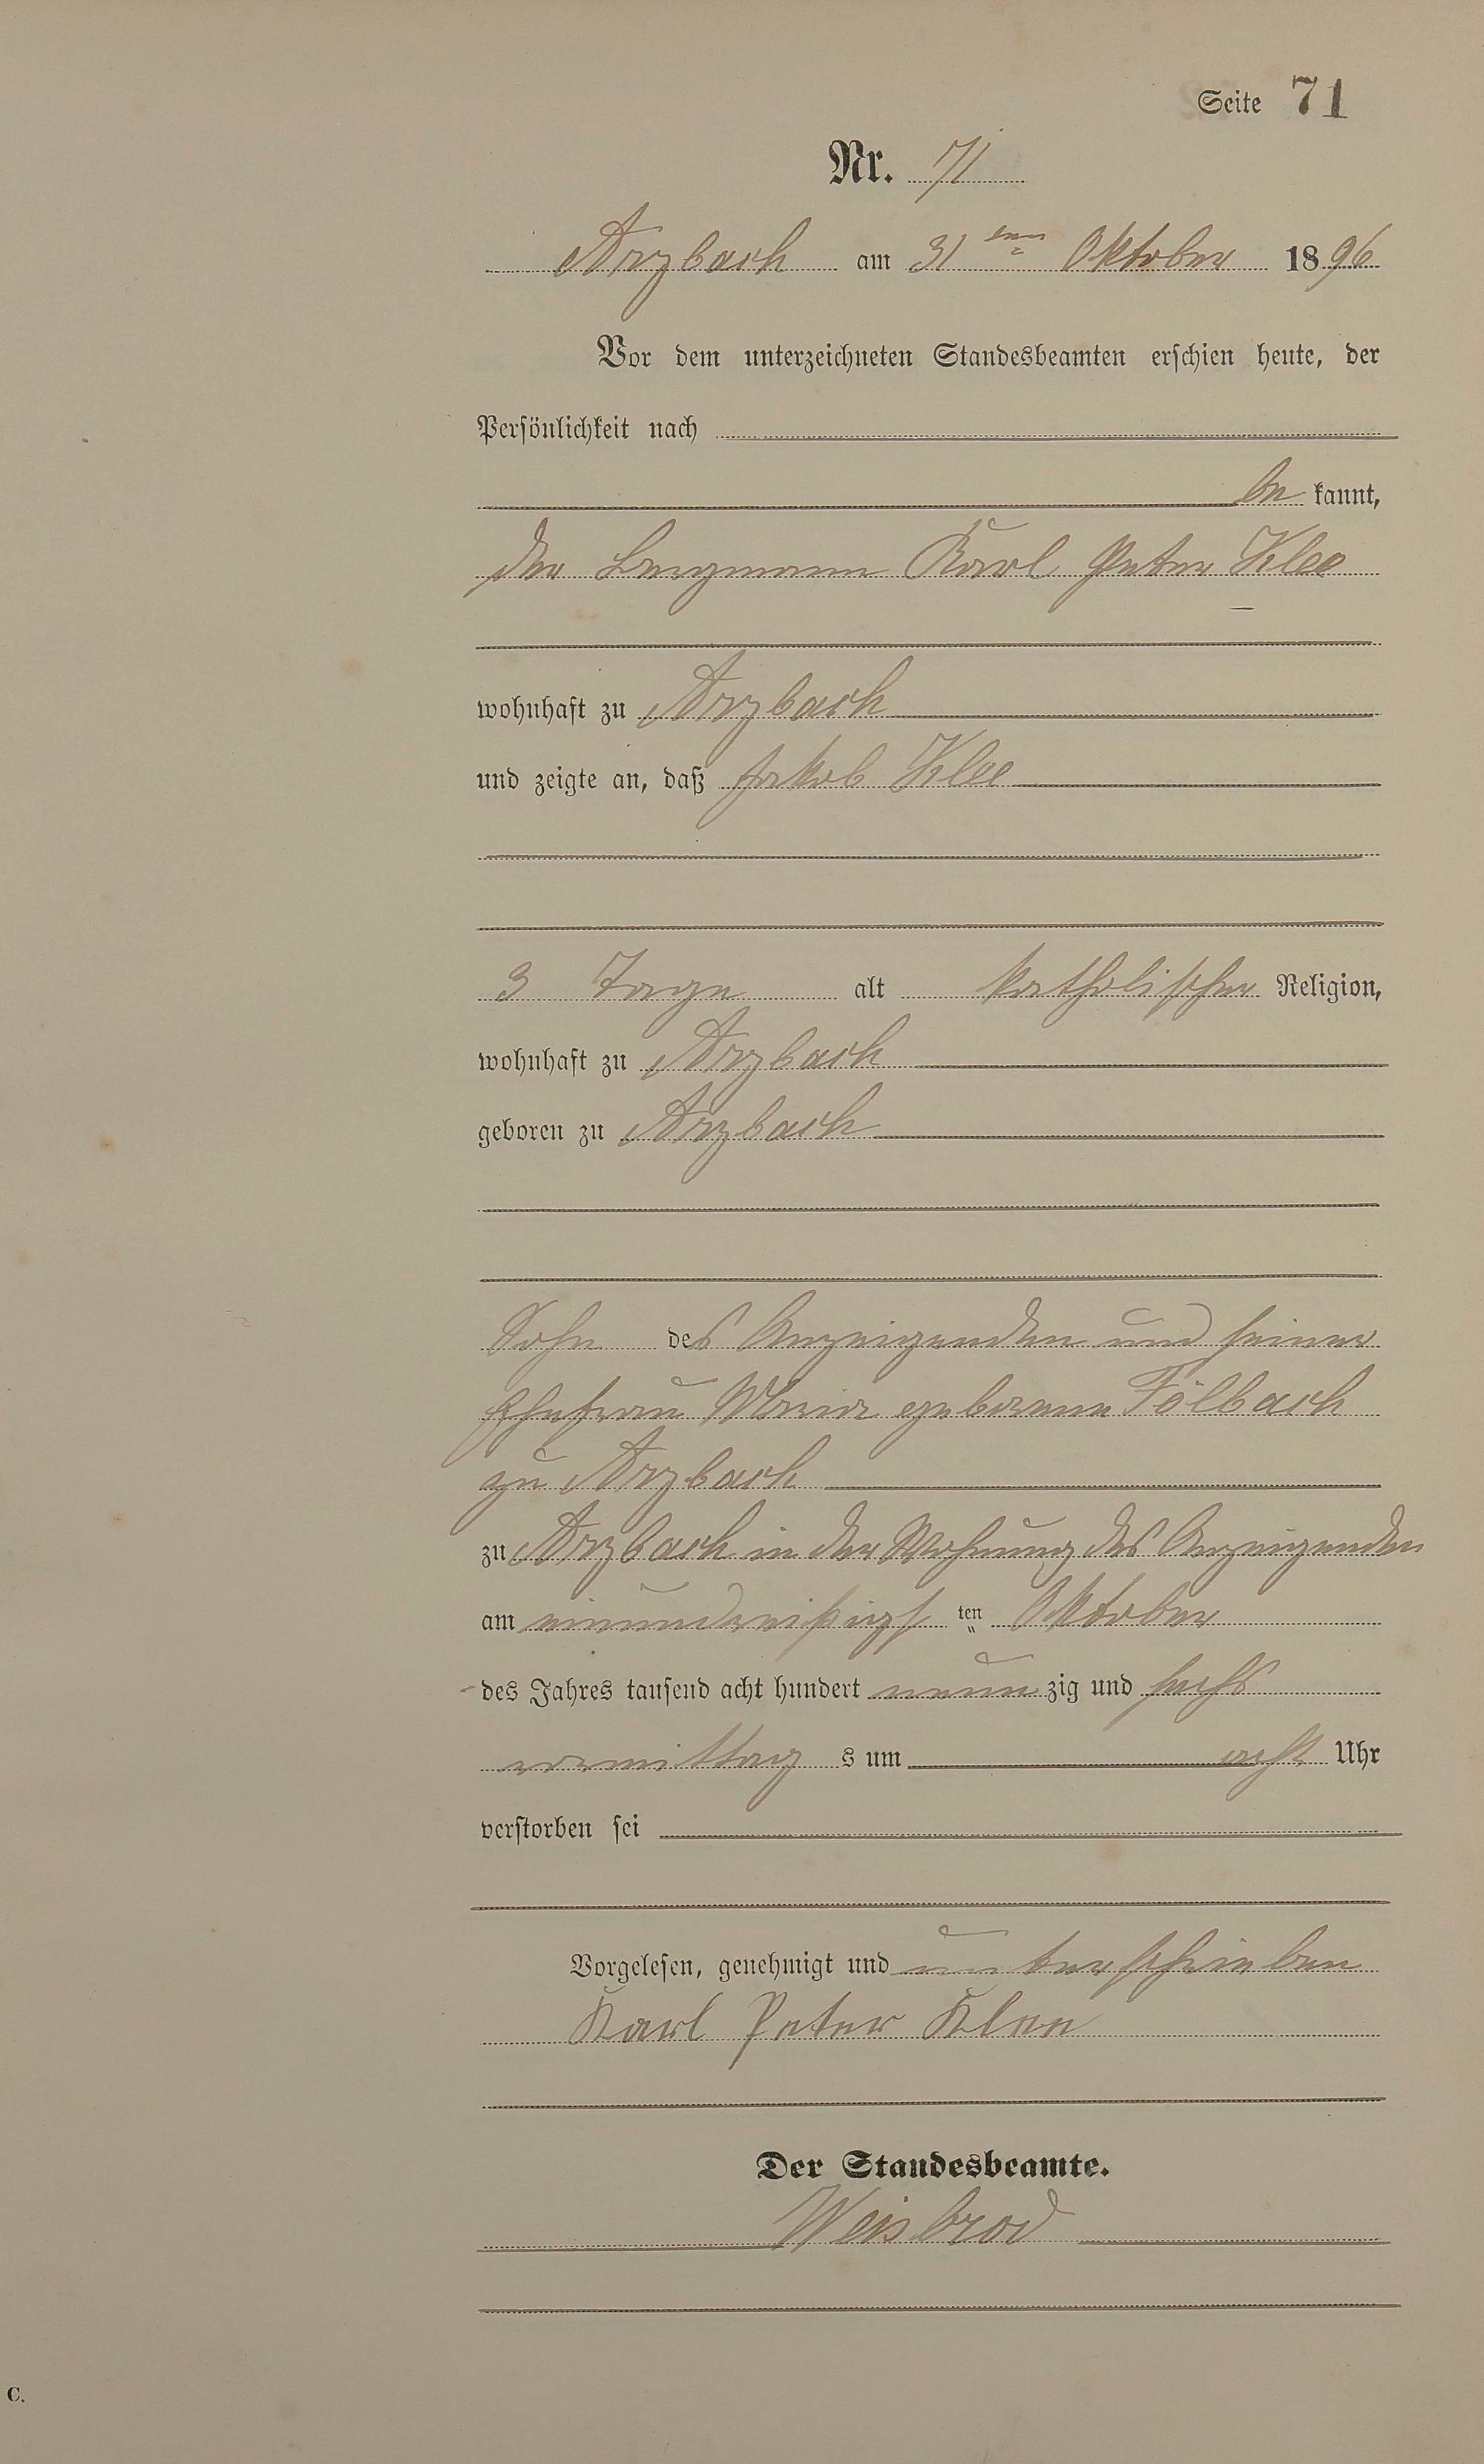 Seite 71
Nr. 71
Arzbach am 31 ten Oktober 1896
Vor dem unterzeichneten Standesbeamten erschien heute, der
Persönlichkeit nach
be kannt,
der Bergmann Karl Peter Klee
wohnhaft zu Arzbach
und zeigte an, daß Jakob Klee
3 Tage alt katholischer Religion,
wohnhaft zu Arzbach
geboren zu Arzbach
Sohn des Anzeigenden und seiner
Ehefrau Maria geborene Fölbach
zu Arzbach
zu Arzbach in der Wohnung des Anzeigenden
am einunddreißigs ten Oktober
des Jahres tausend acht hundert neun zig und sechs
vormittag s um acht Uhr
verstorben sei
Vorgelesen, genehmigt und unterschrieben
Karl Peter Klee
Der Standesbeamte.
Weisbrod
C.